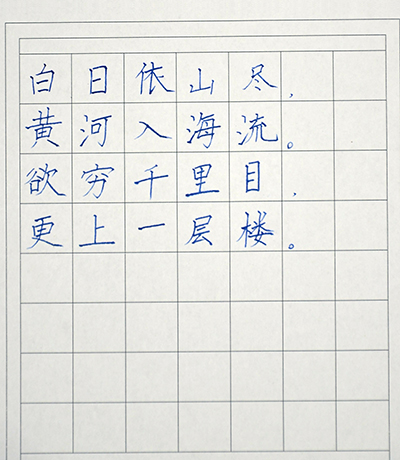 白日依山尽,
黄河入海流。
欲穷千里目,
更上一层楼。